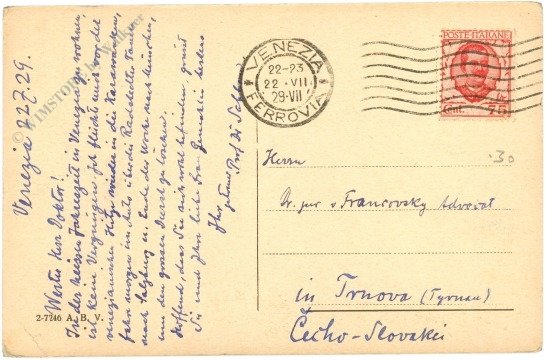 Venezia 22.7.29.
Werter Herr Doktor!
In der heissen Jahreszeit in Venezia zu wohnen
ist kein Vergnügen. Ich flüchte mich vor der
venezianischen Hitze wieder in die Karawanken,
fahre morgen im Auto über die Radstädter Tauern
nach Salzburg u. Ende der Woche nach München,
um den grossen Durst zu löschen.
Hoffend, dass Sie sich wohl befinden, grüsst
Sie und Ihre liebe Frau Gemahlin bestens
Ihr
Prof. Di
2-7246 A. B. V.
VENEZIA
22-23
22 · VII
29·VII
FERROVIA
POSTE ITALIANE
Cent. 75
30
Herrn
Dr. jur v Francovsky Advocat
in Trnova (Tyrnau)
Čecho-Slovakei
© WIMSTORY by Wallner